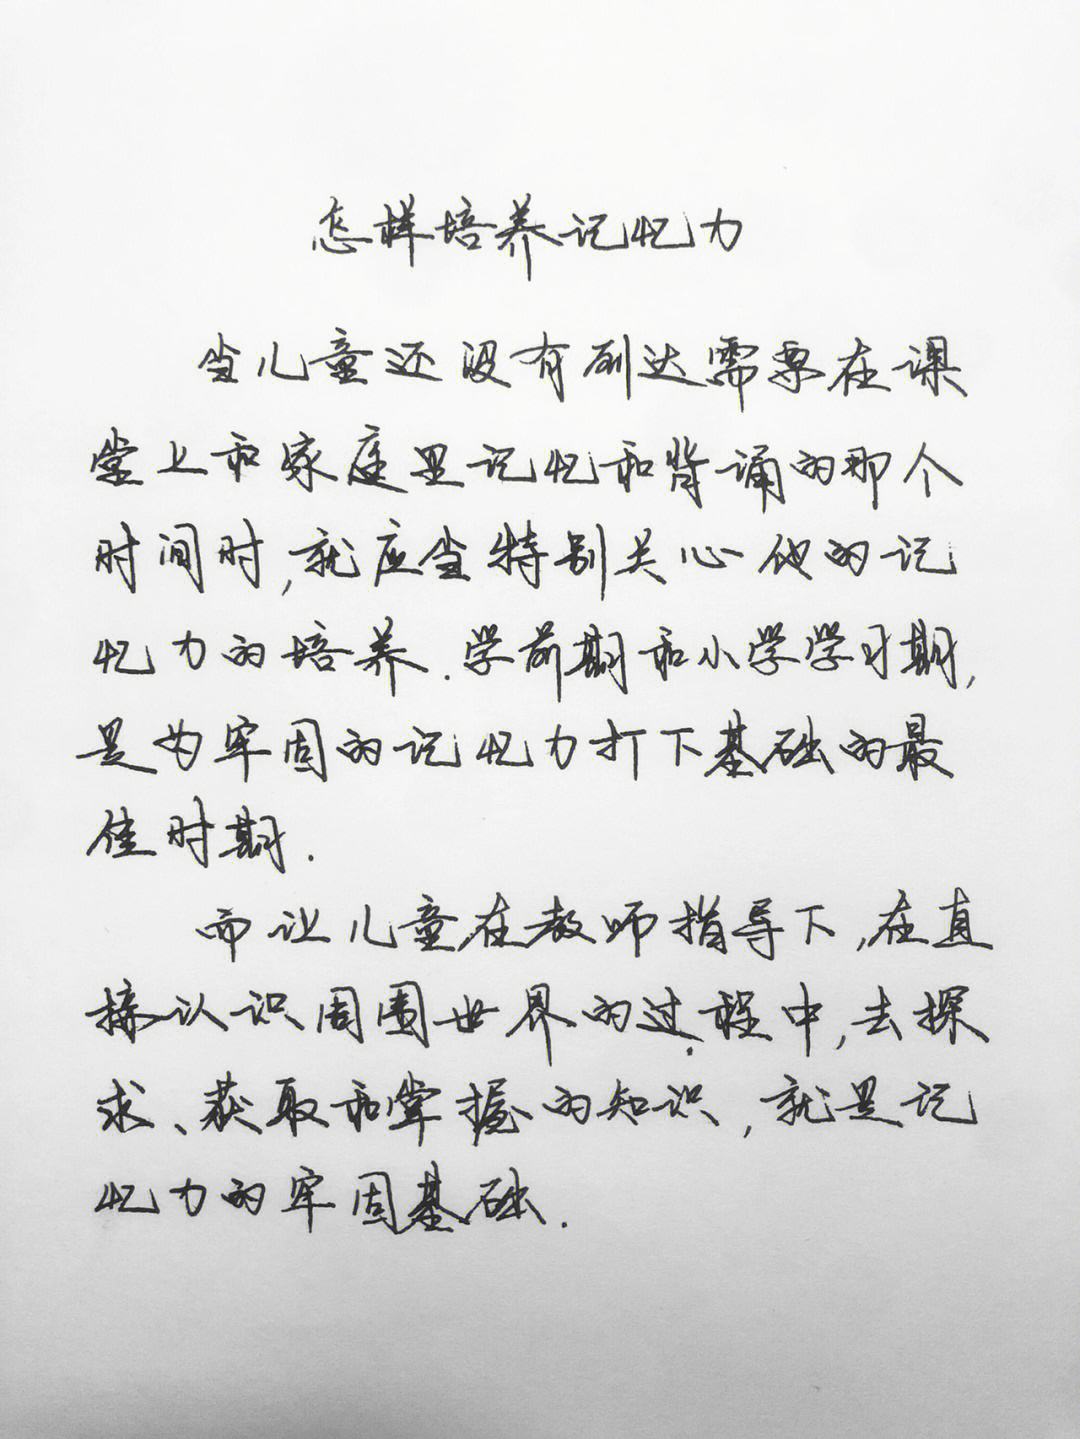 怎样培养记忆力
当儿童还没有到达需要在课
堂上和家庭里记忆和背诵的那个
时间时,就应当特别关心他的记
忆力的培养.学前期和小学学习期,
是为牢固的记忆力打下基础的最
佳时期.
而让儿童在教师指导下,在直
接认识周围世界的过程中,去探
求、获取和掌握的知识,就是记
忆力的牢固基础.